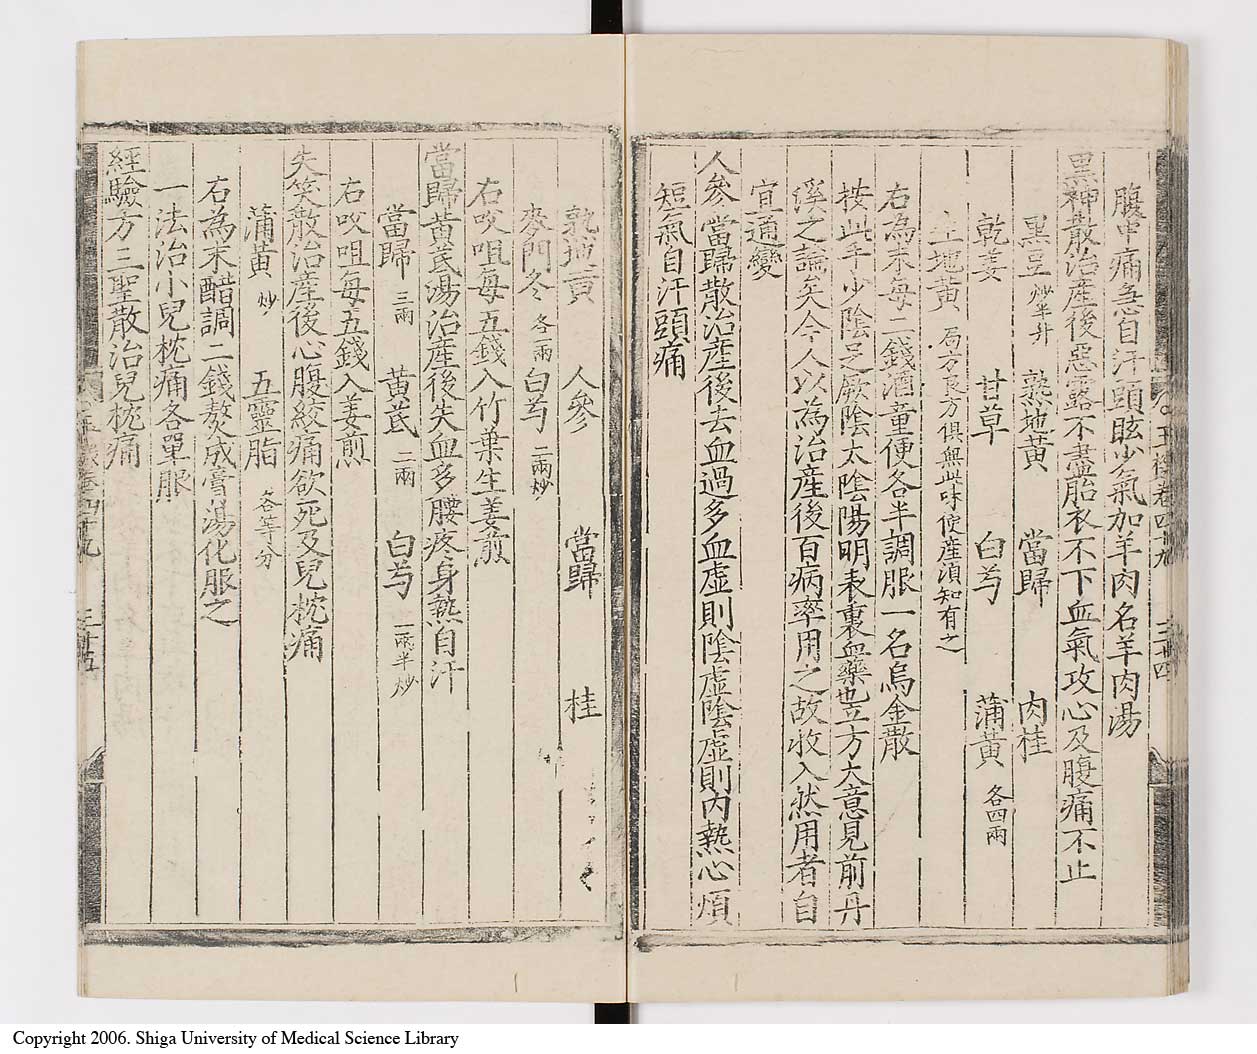 腹中痛急自汗頭眩少氣加羊肉名羊肉湯
黑神散治産後惡露不盡胎衣不下血氣攻心及腹痛不止
黑豆 炒半升 熟地黃 當歸 肉桂
乾姜 甘草 白芍 蒲黃 各四兩
生地黃 局方良方俱無此味使産須知有之
右為末每二錢酒童便各半調服一名烏金散
按此手少陰足厥陰太陰陽明表裏血藥也立方大意見前丹
溪之論矣今人以為治産後百病率用之故收入然用者自
宜通變
人參當歸散治産後去血過多血虛則陰虛陰虛則內熱心煩
短氣自汗頭痛
熟地黃 人參 當歸 桂
麥門冬 各一兩 白芍 二兩炒
右㕮咀每五錢入竹葉生姜煎
當歸黃芪湯治産後失血多腰疼身熱自汗
當歸 三兩 黃芪 二兩 白芍 一兩半炒
右㕮咀每五錢入姜煎
失笑散治産後心腹絞痛欲死及兒枕痛
蒲黃 炒 五靈脂 各等分
右為末醋調二錢熬成膏湯化服之
一法治小兒枕痛各單服
經驗方三聖散治兒枕痛
卷四十九
三十五
Copyright 2006. Shiga University of Medical Science Library